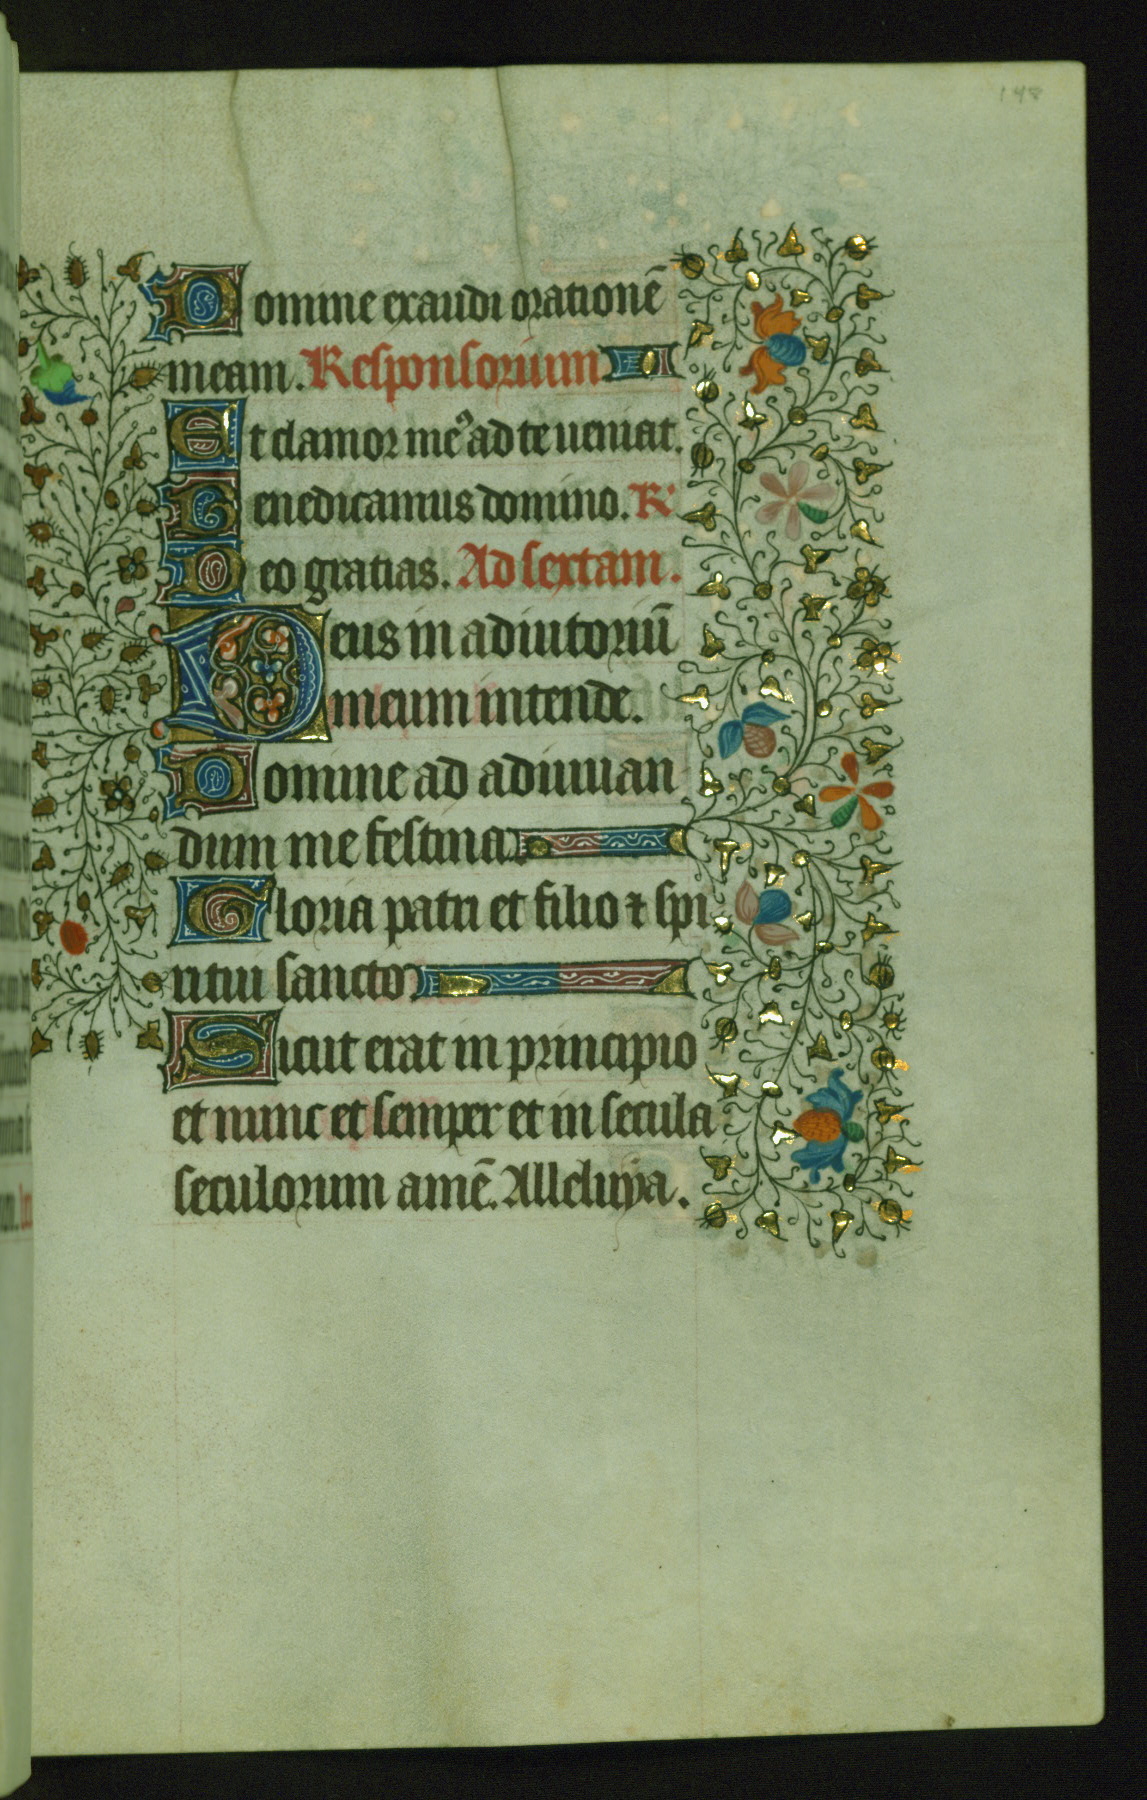 148
Domine exaudi orationē
meam. Responsorium
Et clamor meꝰ ad te ueniat.
Benedicamus domino. R
Deo gratias. Ad sextam.
Deus in adiutoriū
meum intende.
Domine ad adiuuan
dum me festina
Gloria patri et filio ⁊ spi
ritui sancto
Sicut erat in principio
et nunc et semper et in secula
seculorum amē. Alleluya.